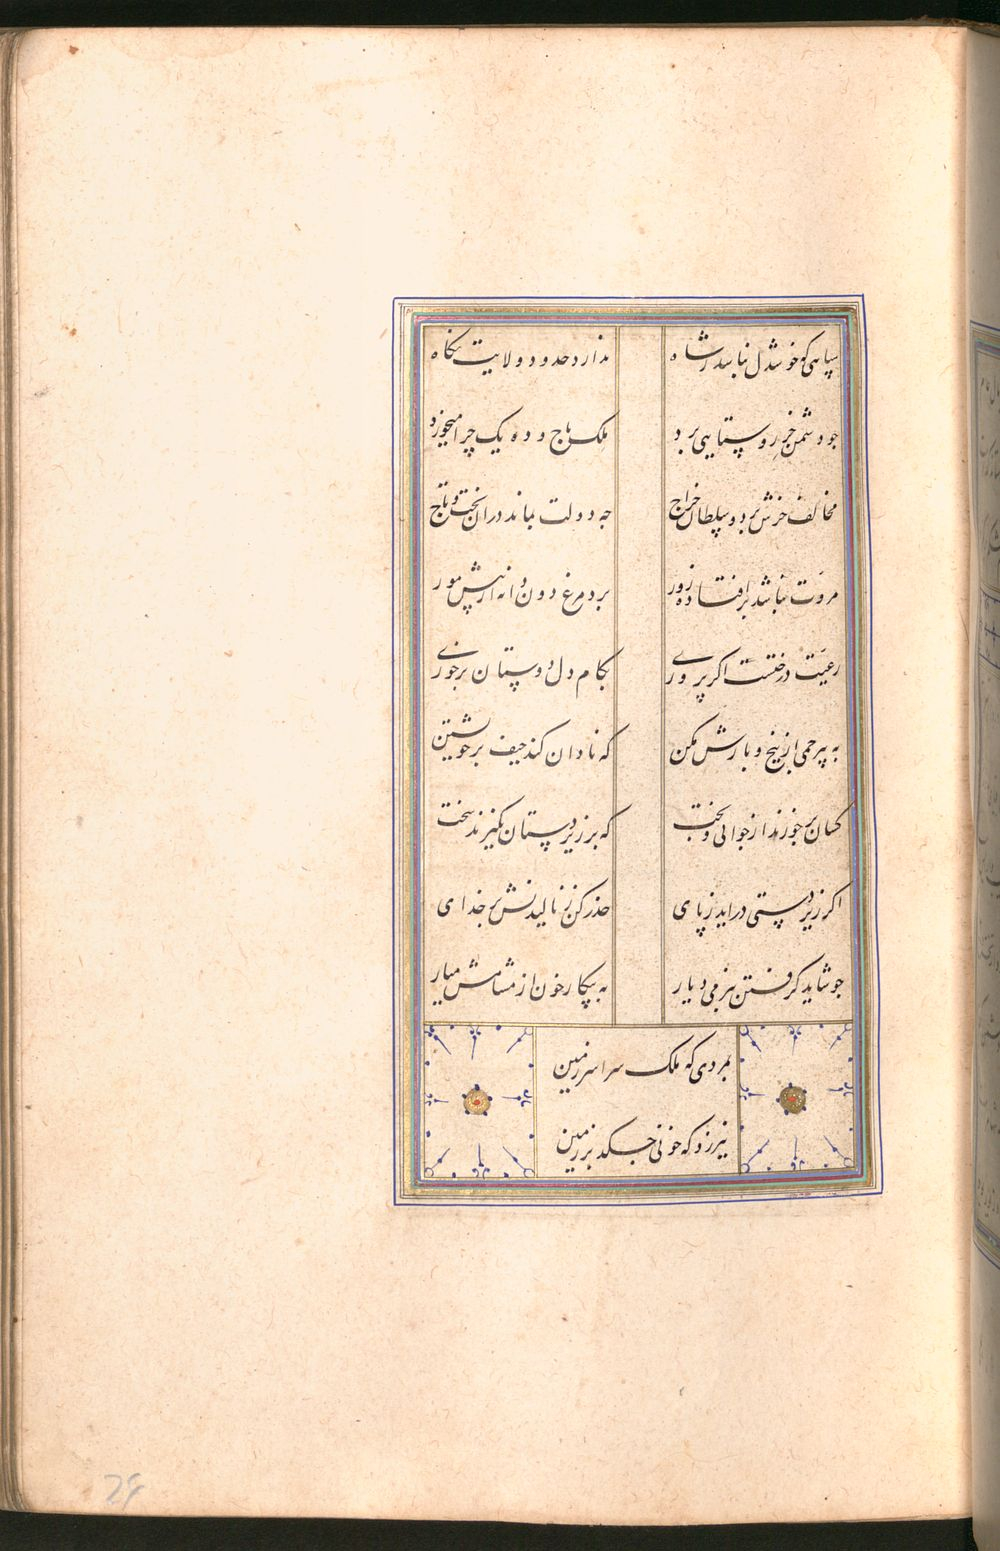 سپاهی که خوشدل نباشد ز شاه
ندارد حدود ولایت نگاه
چو دشمن خر روستایی برد
ملک باج و ده یک چرا میخورد
مخالف خرش برد و سلطان خراج
چه دولت بماند در آن تخت و تاج
مروت نباشد بر افتاده زور
برد مرغ دون دانه از پیش مور
رعیت درختست اگر پروری
بکام دل دوستان برخوری
به بیرحمی از بیخ و بارش مکن
که نادان کند حیف بر خویشتن
کسان برخورند از جوانی و بخت
که بر زیردستان نگیرند سخت
اگر زیردستی درآید ز پای
حذر کن ز نالیدنش بر خدای
چو شاید گرفتن بنرمی دیار
به پیکار خون از مشامش میار
بمردی که ملک سراسر زمین
نیرزد که خونی چکد بر زمین
29